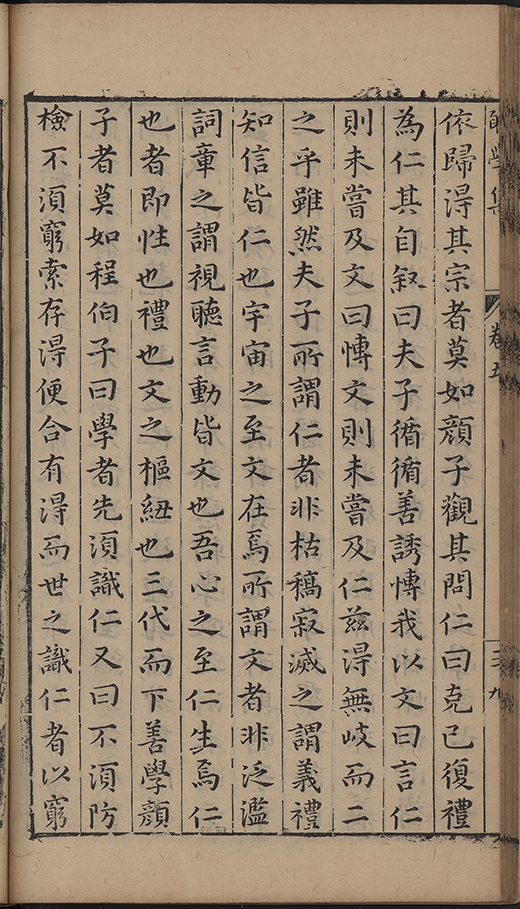 學集
卷五
依歸得其宗者莫如顏子觀其問仁曰克己復禮
為仁其自叙曰夫子循循善誘愽我以文曰言仁
則未嘗及文曰愽文則未嘗及仁兹得無岐而二
之乎雖然夫子所謂仁者非枯稿寂滅之謂義禮
知信皆仁也宇宙之至文在焉所謂文者非泛濫
詞章之謂視聽言動皆文也吾心之至仁生焉仁
也者即性也禮也文之樞紐也三代而下善學顏
子者莫如程伯子曰學者先湏識仁又曰不湏防
檢不湏窮索存得便合有得而世之識仁者以窮